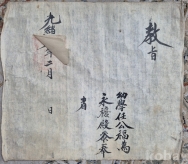 教旨
幼學任公福爲
永禧殿參奉
者
光緒
年二月 日